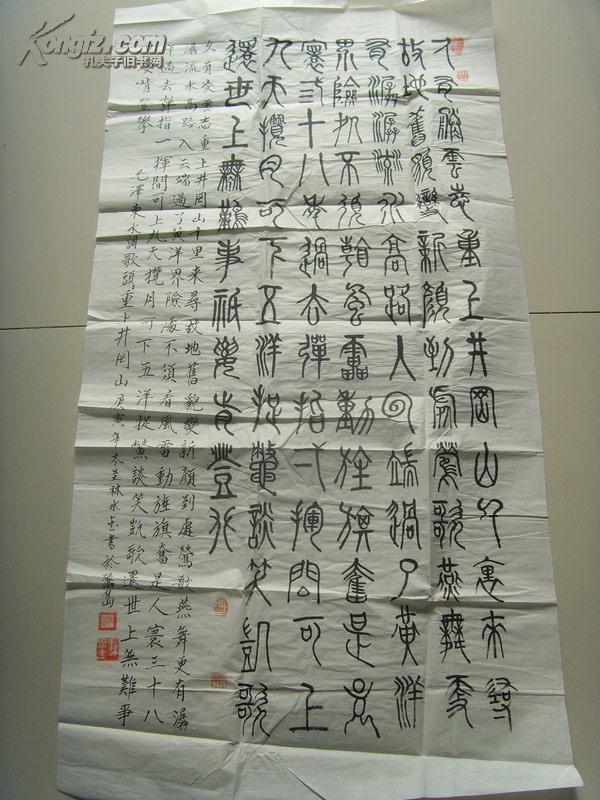 久有凌雲志重上井岡山千里來尋
故地舊貌變新顏到處鶯歌燕舞更
有潺潺流水高路入雲端過了黃洋
界險處不須看風雷動旌旗奮是人
寰三十八年過去彈指一揮間可上
九天攬月可下五洋捉鱉談笑凱歌
還世上無難事祇要肯登攀
久有凌雲志重上井岡山千里來尋故地舊貌變新顏到處鶯歌燕舞更有潺
潺流水高路入雲端過了黃洋界險處不須看風雷動旌旗奮是人寰三十八
年過去彈指一揮間可上九天攬月可下五洋捉鱉談笑凱歌還世上無難事
祇要肯登攀 毛澤東水調歌頭重上井岡山 庚寅年冬至林水 書於 島
Kongfz.com
孔夫子旧书网